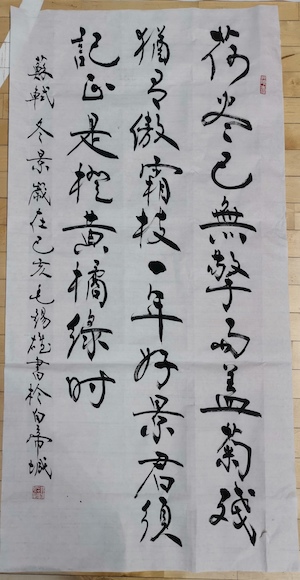 荷尽已無擎雨盖菊殘
猶有傲霜枝一年好景君須
記正是橙黄橘綠时
蘇軾 冬景 歲在己亥 毛 書於白帝城